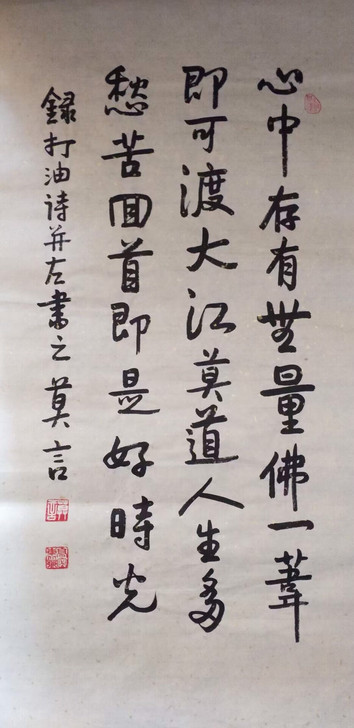 心中存有無量佛一葦
即可渡大江莫道人生多
愁苦回首即是好時光
録打油诗并左書之莫言